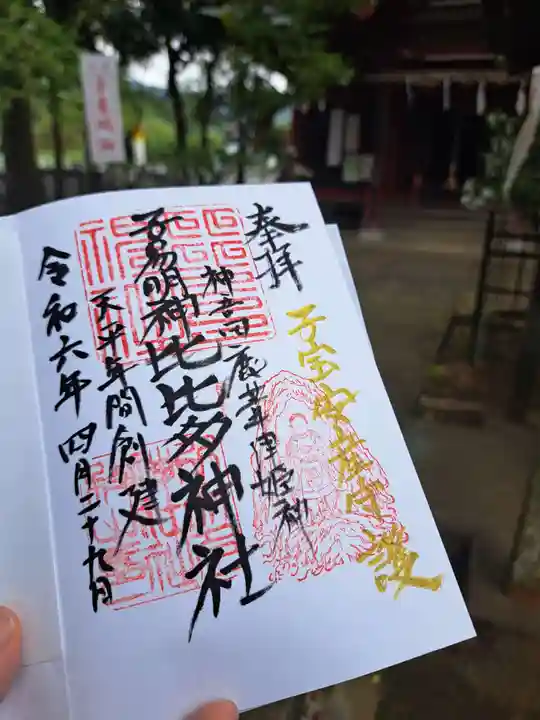 奉拝
子宝安産守護
神吾田鹿葦津姫神
子易明神比比多神社
天平年間創建
令和六年 四月二十九月